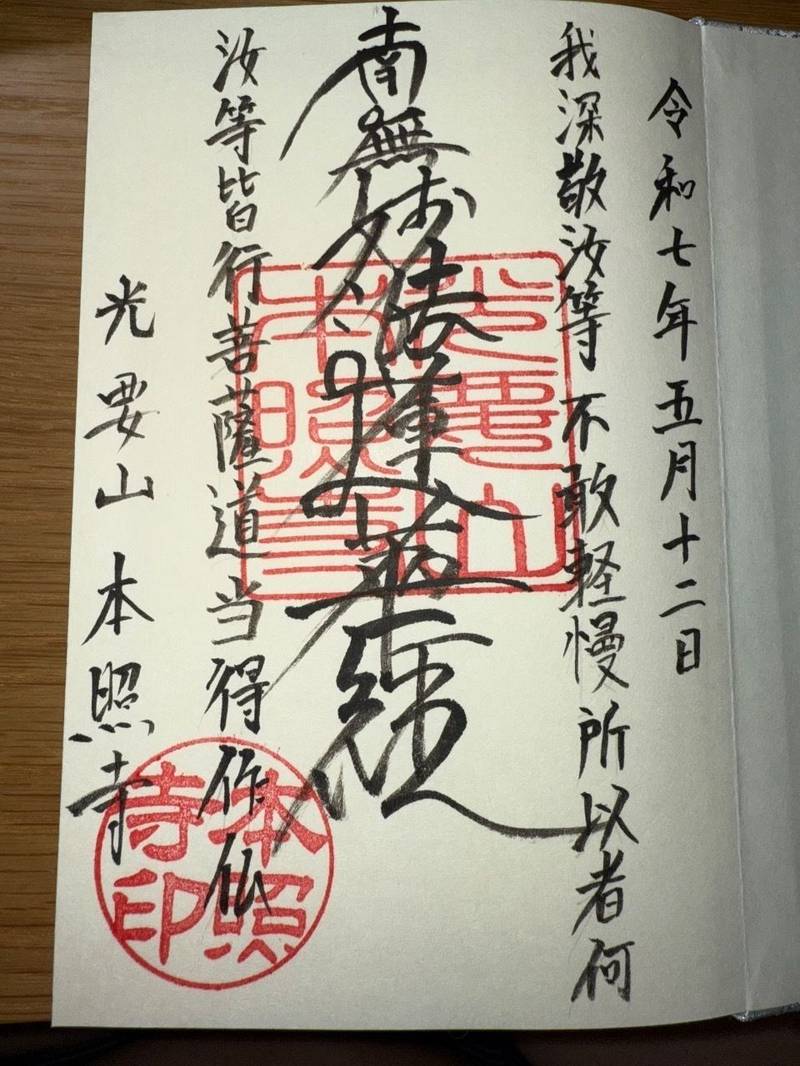 令和七年五月十二日
我深敬汝等不敢軽慢所以者何
南無妙法蓮華経
汝等皆行菩薩道当得作仏
光要山本照寺
光要山
本照寺
本照
寺印